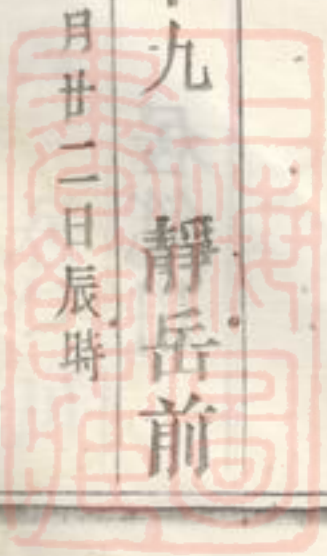 九 靜岳前
月廿二日辰時